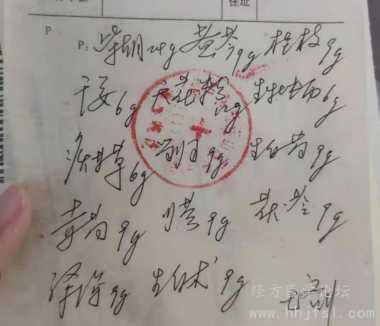 住址
P
P: 柴胡24g 黄芩9g 桂枝9g
干姜6g 天花粉 生牡蛎6g
炙甘草6g 当归9g 生白芍9g
赤芍9g 川芎9g 茯苓9g
泽泻9g 生白术9g
经方医学论坛
www.hhjfsl.com